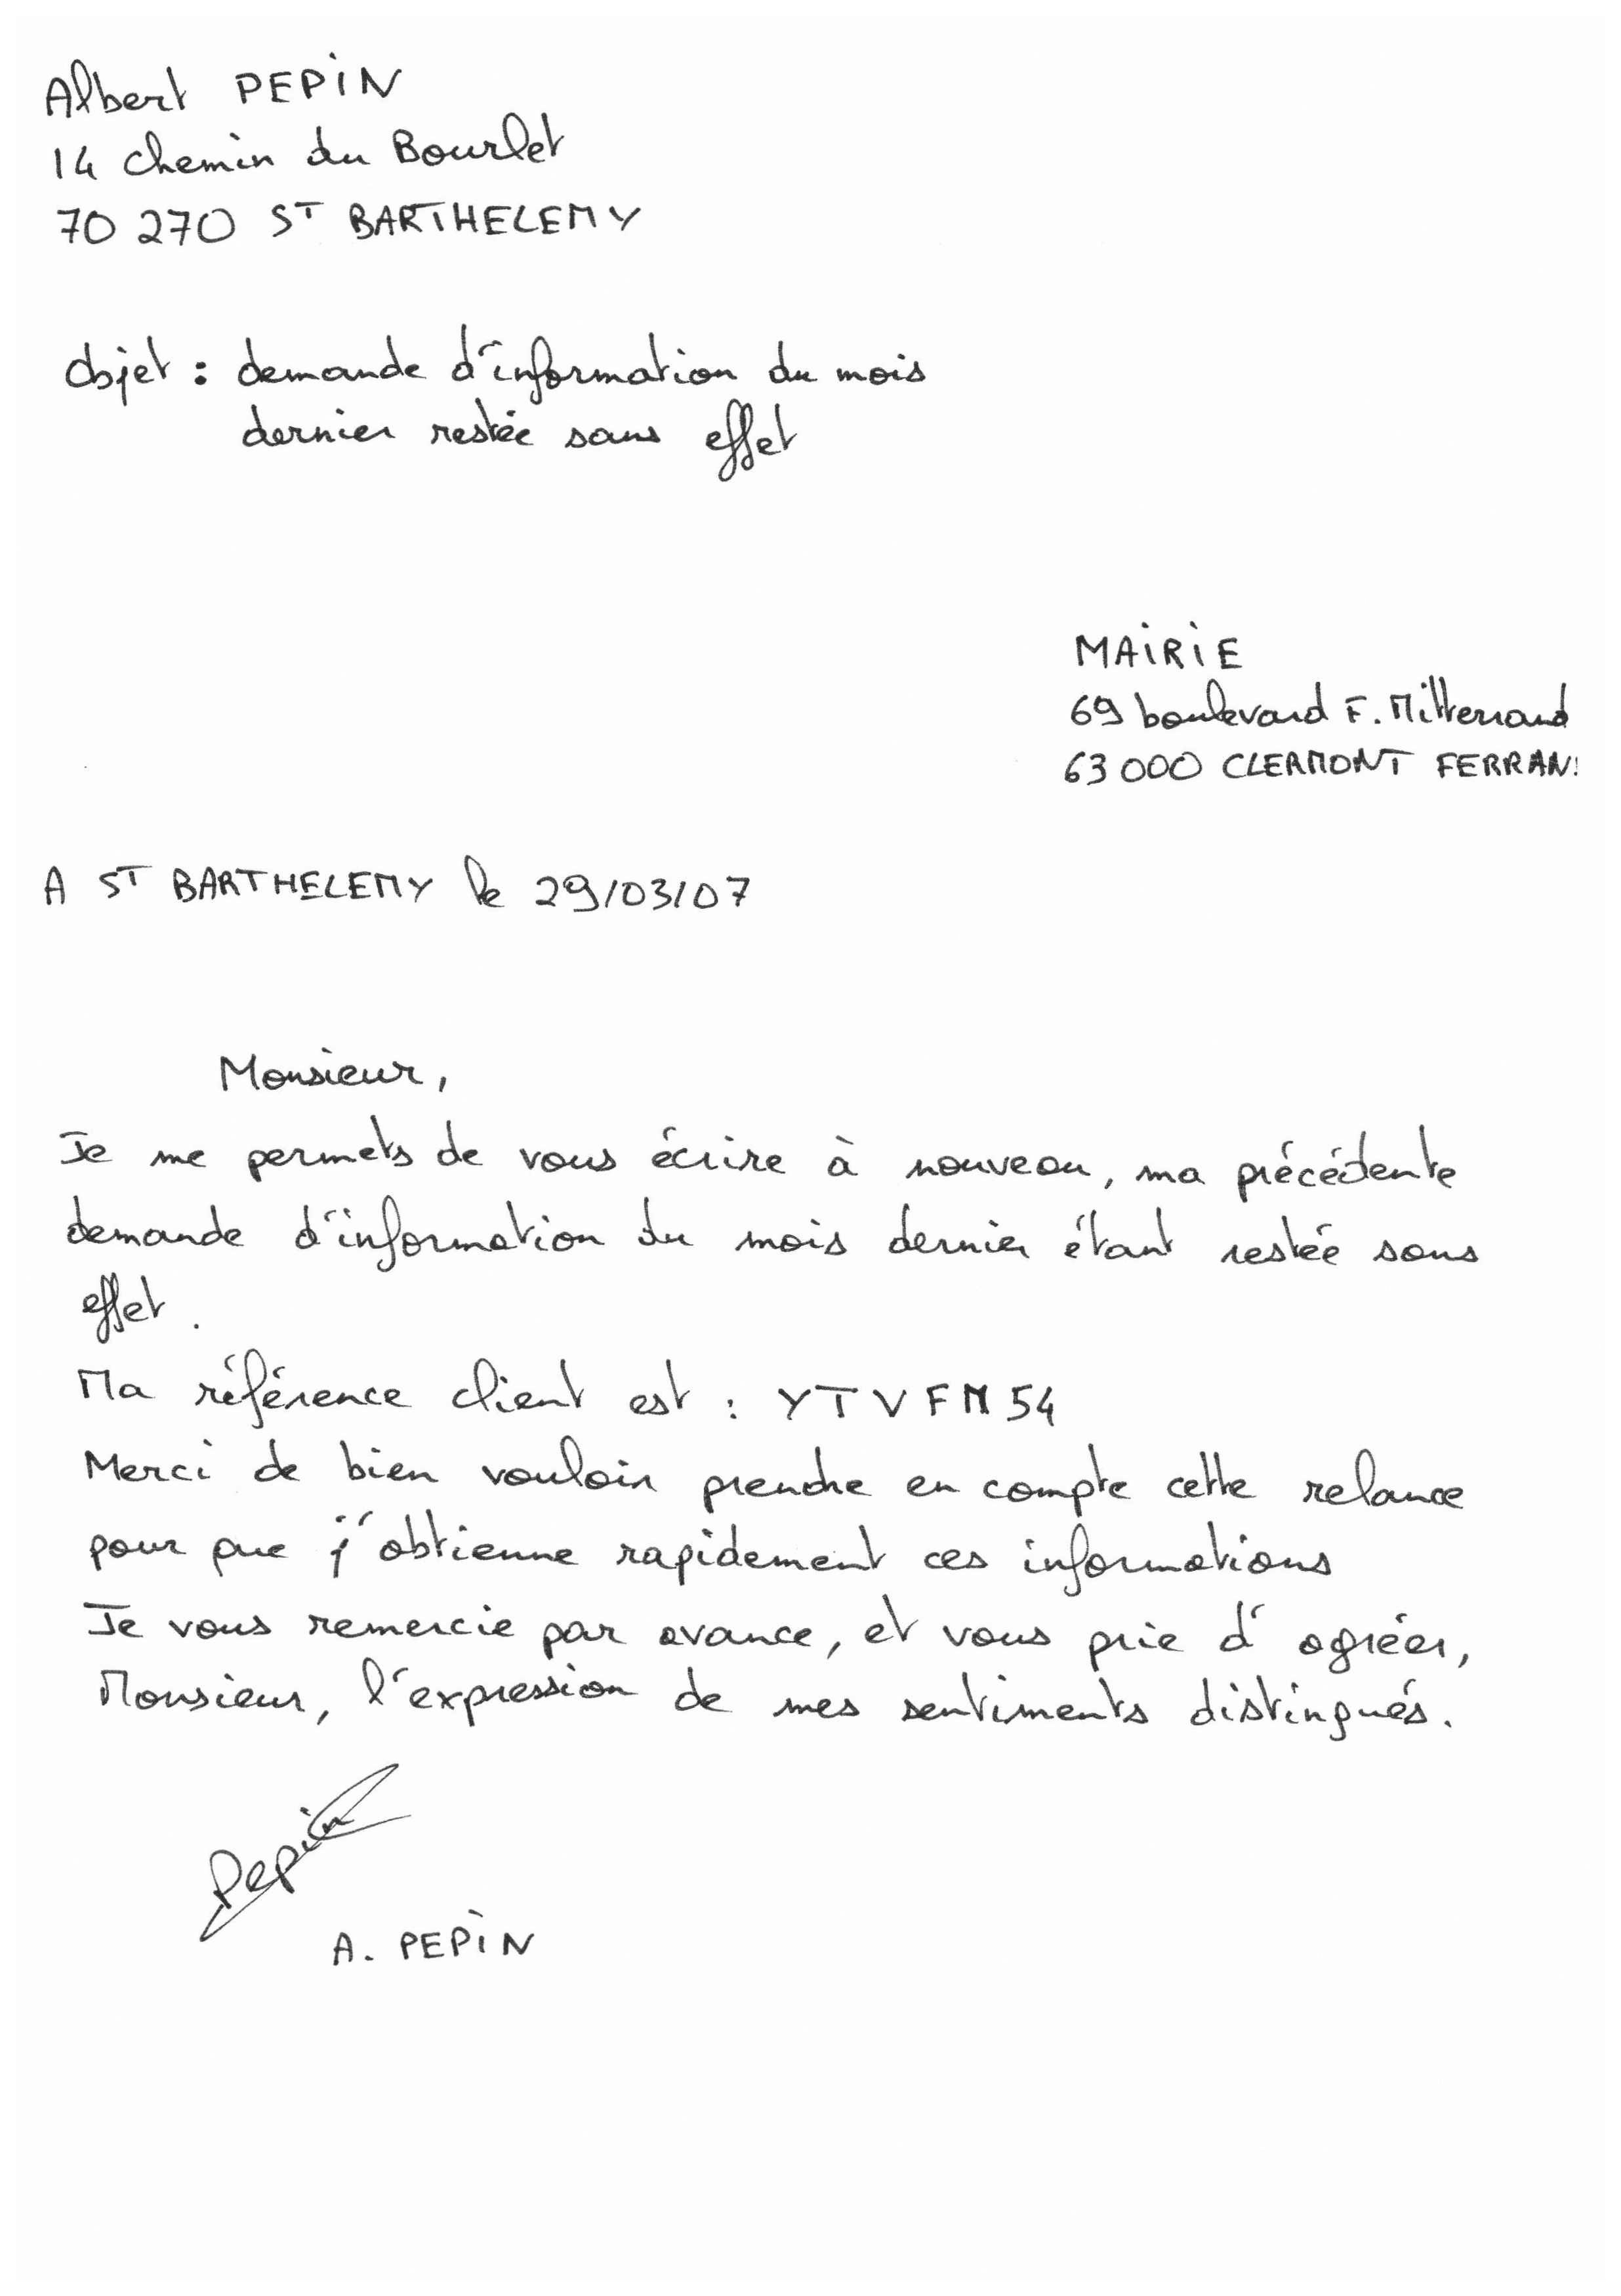 Albert PEPIN
14 chemin du Bourlet
70 270 ST BARTHELEMY
Objet : demande d'information du mois
dernier restée sans effet
MAIRIE
69 boulevard F. Mitterrand
63 000 CLERMONT FERRAN
A ST BARTHELEMY le 29/03/07
Monsieur,
Je me permets de vous écrire à nouveau, ma précédente
demande d'information du mois dernier étant restée sans
effet.
Ma référence client est : YTVFM54
Merci de bien vouloir prendre en compte cette relance
pour que j'obtienne rapidement ces informations
Je vous remercie par avance, et vous prie d'agréer,
Monsieur, l'expression de mes sentiments distingués.
Pepin
A. PEPIN